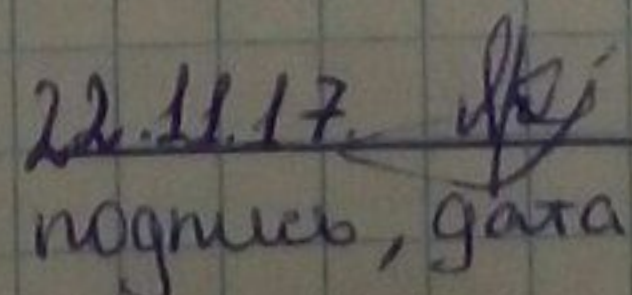 22.11.17.
подпись, дата